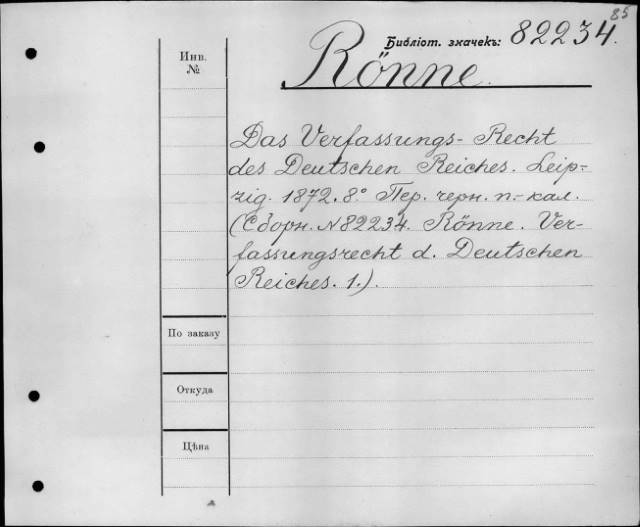 85
Библіот. значекъ: 82234.
Инв.
№
Rönne.
Das Verfassungs-Recht
des Deutschen Reiches. Leip-
zig. 1872. 8.° Пер. черн. п.-кал.
(Сборн. №82234. Rönne. Ver-
fassungsrecht d. Deutschen
Reiches. 1.).
По заказу
Откуда
Цѣна